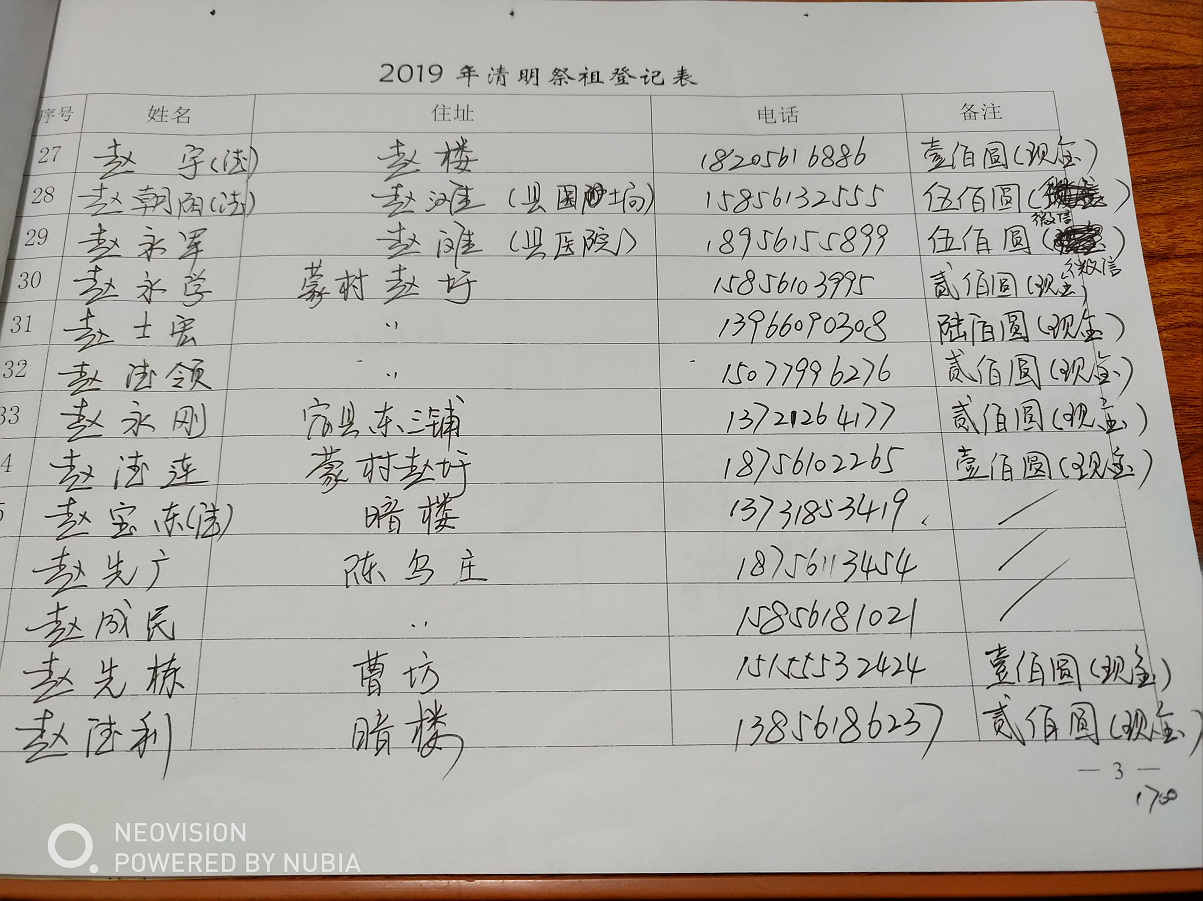 2019年清明祭祖登记表
序号 姓名 住址 电话 备注
27 赵宇(法) 赵楼 18205616886 壹佰圆(现金)
28 赵朝雨(法) 赵滩 (县国土局) 15856132555 伍佰圆( ) 微信
29 赵永军 赵滩 (县医院) 18956155899 伍佰圆( ) 微信
30 赵永学 蒙村赵圩 15856103995 贰佰圆(现金)
31 赵士宏 〃 13966090308 陆佰圆(现金)
32 赵法领 〃 15077996276 贰佰圆(现金)
33 赵永刚 宿县东三铺 13721264177 贰佰圆(现金)
4 赵法连 蒙村赵圩 18756102265 壹佰圆(现金)
5 赵宝东(法) 暗楼 13731853419 /
赵先广 陈乌庄 18756113454 /
赵成民 〃 15856181021 /
赵先栋 曹坊 15155532424 壹佰圆(现金)
赵法利 暗楼 13856186237 贰佰圆(现金)
— 3 —
1700
NEOVISION
POWERED BY NUBIA